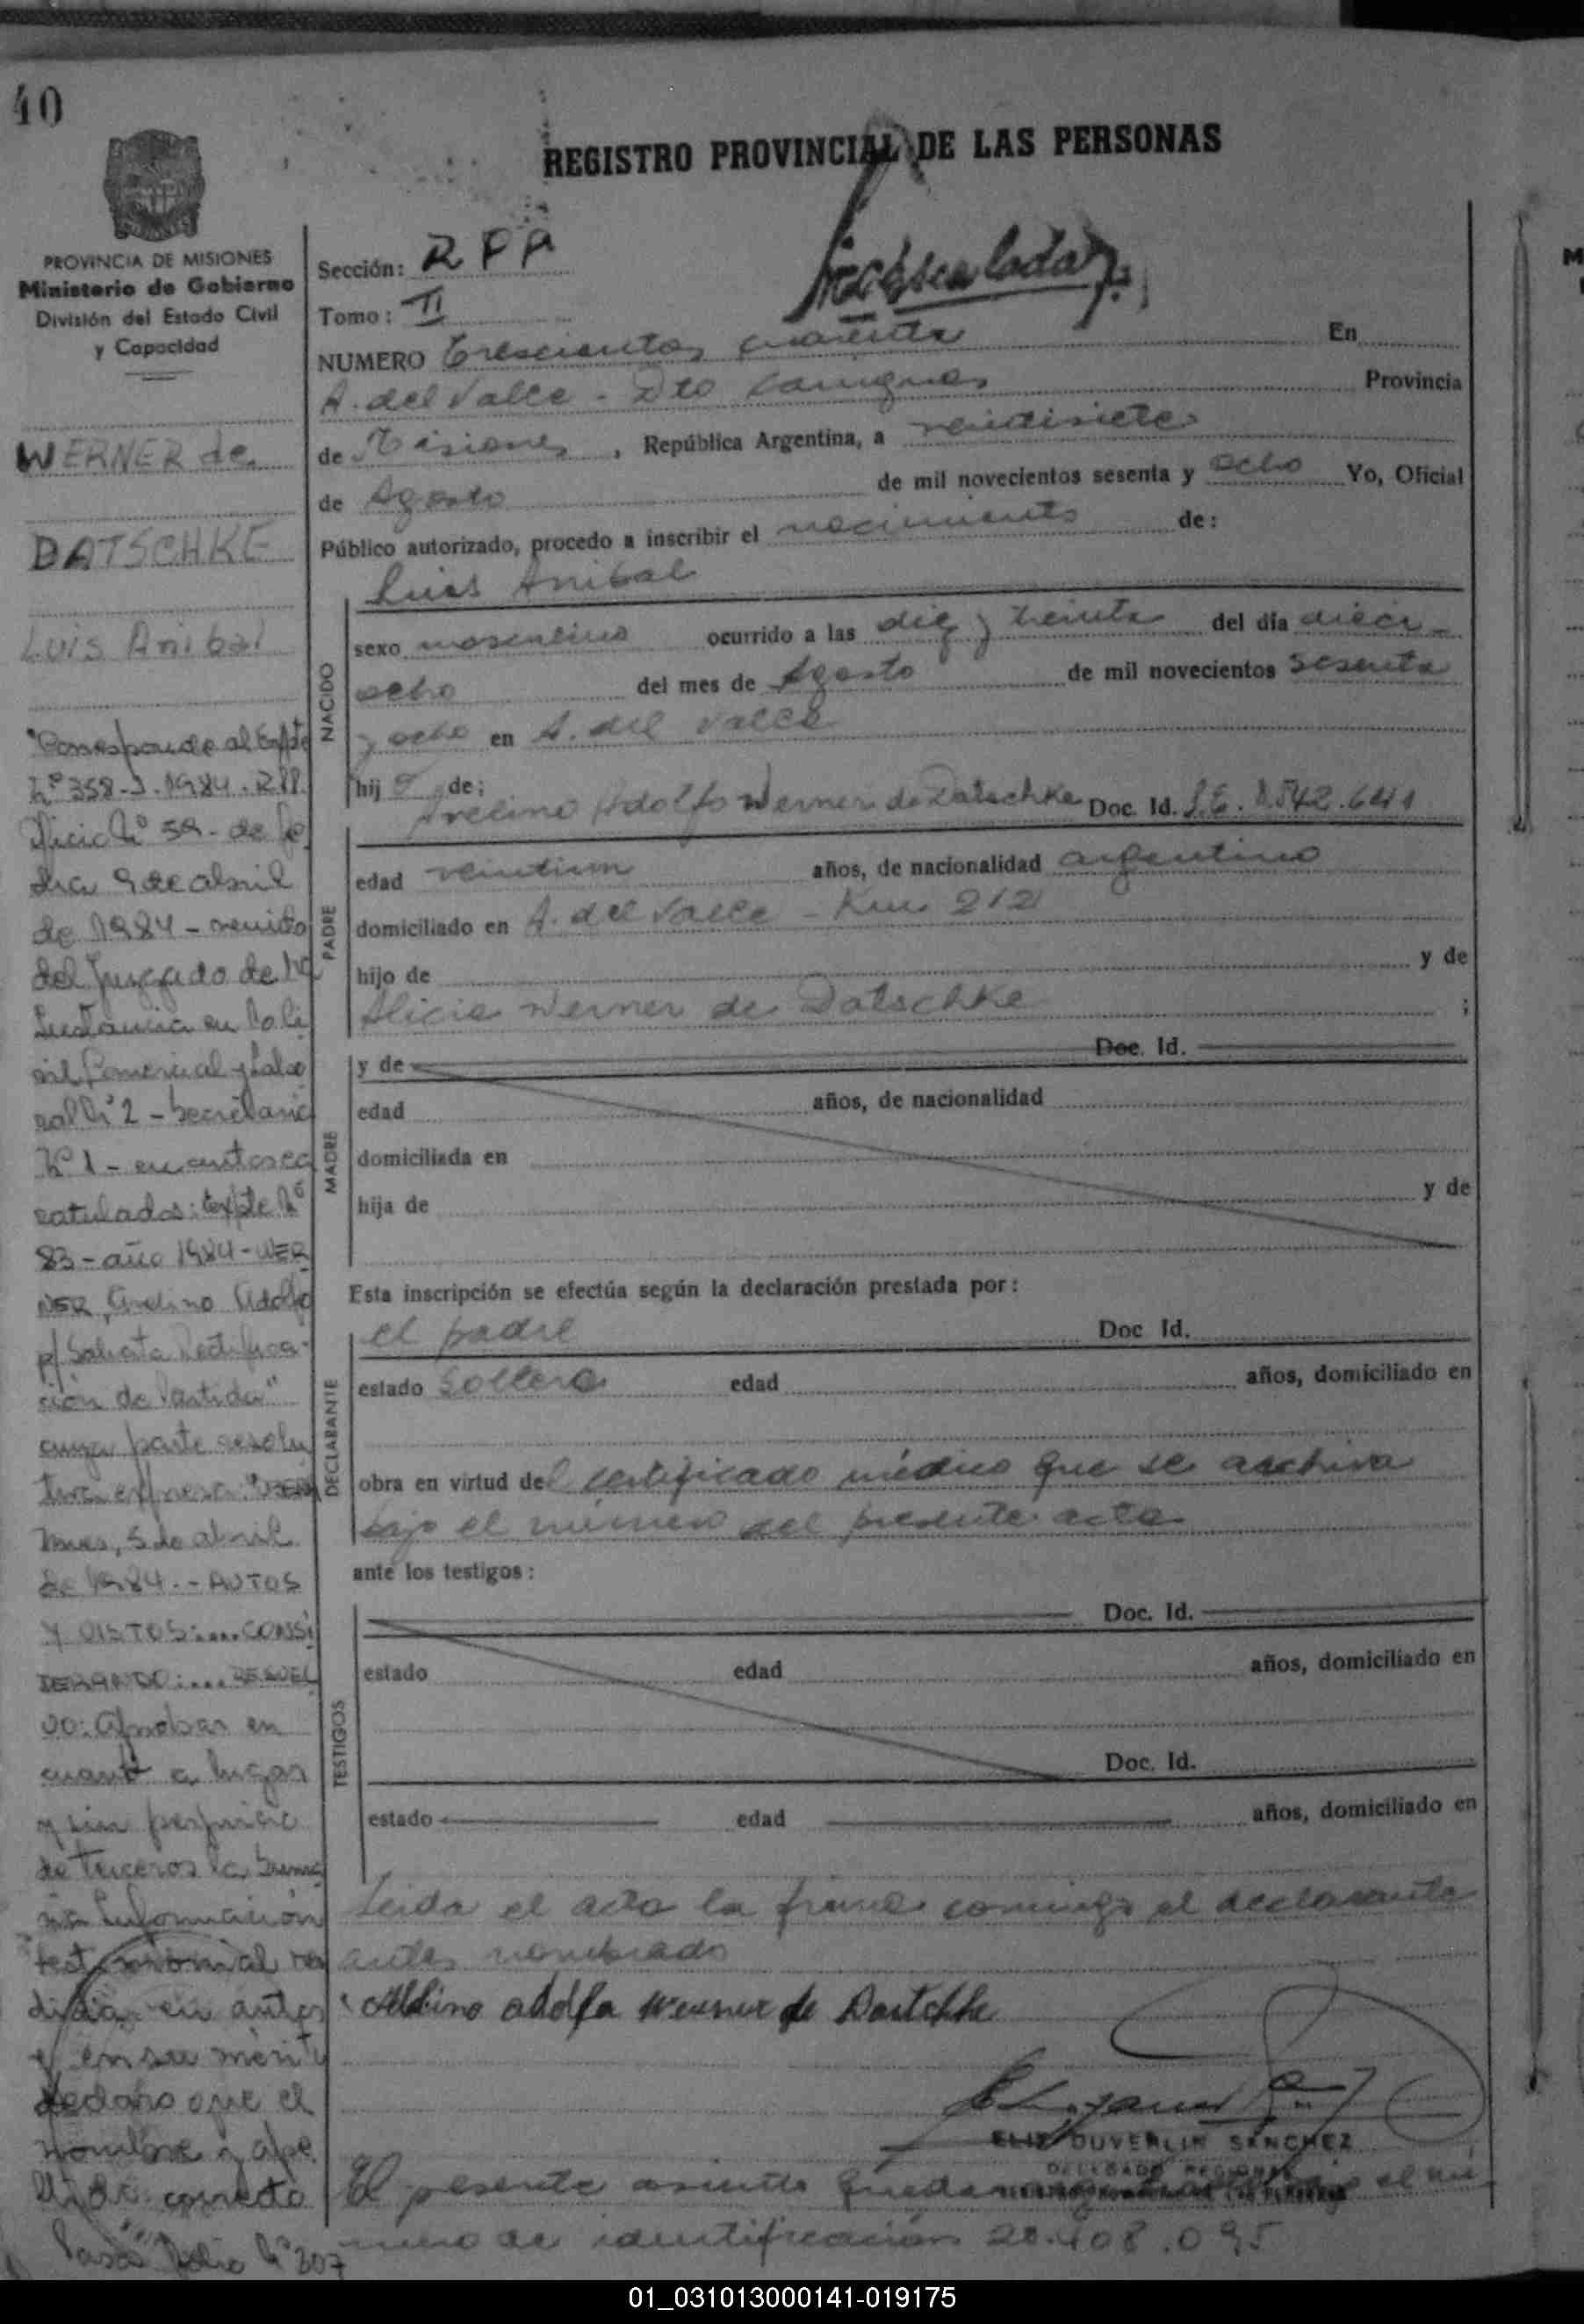 40
REGISTRO PROVINCIAL DE LAS PERSONAS
PROVINCIA DE MISIONES
Ministerio de Gobierno
División del Estado Civil
y Capacidad
WERNER de
DATSCHKE
Luis Anibal
"Corresponde al Expte
Nº 358-J-1984. RPP.
Oficio Nº 59- de fe
cha 9 de abril
de 1984 - venido
del Juzgado de 1ª
Instancia en lo Ci
vil Comercial y Labo
ral Nº 2 - Secretaria
Nº 1 - en autos ca
ratulados: Expte Nº
83 - año 1984 - WER
NER, Avelino Adolfo
p/ Solicita Rectifica-
ción de Partida"
cuya parte resolu
tiva expresa:
5 de abril
de 1984.- AUTOS
Y VISTOS:.... CONSI
DERANDO:.... RESUEL
VO: Aprobar en
cuanto a lugar
y sin perjuicio
de terceros la suma
ria Información
testimonial ren
dida en autos
y en su mérito
declaro que el
nombre y ape
llido correcto
Pasa Folio Nº 307
Sección: RPP
Tomo: II
NUMERO Trescientos cuarenta En
A. del Valle - Dto Cainguas Provincia
de Misiones, República Argentina, a veintisiete
de Agosto de mil novecientos sesenta y ocho Yo, Oficial
Público autorizado, procedo a inscribir el nacimiento de:
Luis Anibal
NACIDO
sexo masculino ocurrido a las diez y treinta del día dieci-
ocho del mes de Agosto de mil novecientos sesenta
y ocho en A. del Valle
hijo de;
Avelino Adolfo Werner de Datschke Doc. Id.
PADRE
edad veintiun años, de nacionalidad argentino
domiciliado en A. del Valle - Km. 212
hijo de y de
Alicia Werner de Datschke ;
MADRE
y de Doc. Id.
edad años, de nacionalidad
domiciliada en
hija de y de
Esta inscripción se efectúa según la declaración prestada por:
DECLARANTE
el padre Doc Id.
estado soltero edad años, domiciliado en
obra en virtud del certificado médico que se archiva
bajo el número del presente acta
ante los testigos:
TESTIGOS
Doc. Id.
estado edad años, domiciliado en
Doc. Id.
estado edad años, domiciliado en
Leida el acta la firma conmigo el declarante
antes nombrado
adolfo Werner de
ELIX DUVERLIN SANCHEZ
DELEGADO REGIONAL
El presente asiento queda el nú-
mero de identificación 20.408.095
01_031013000141-019175